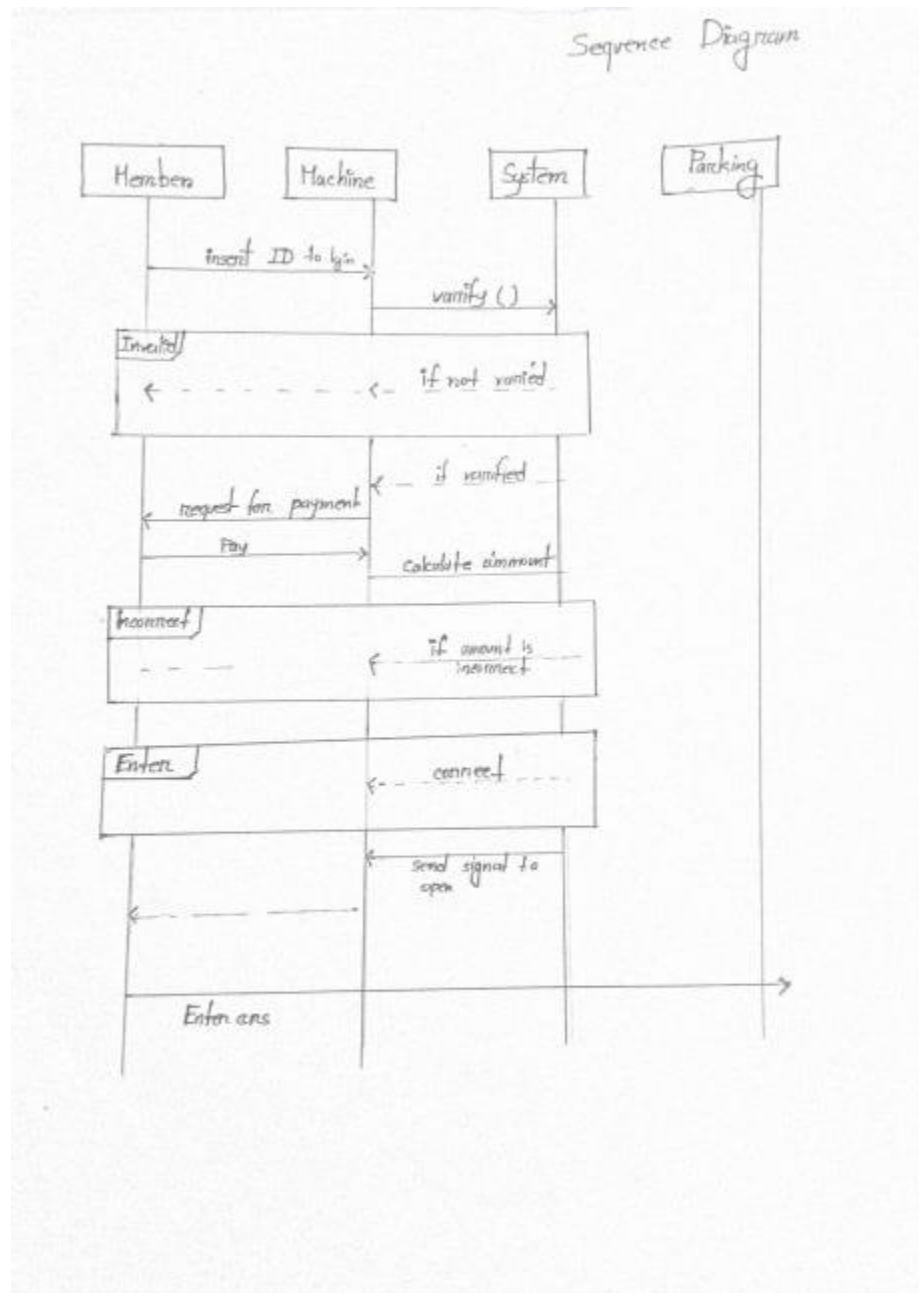 Sequence Diagram
Member
Machine
System
Parking
insert ID to login
varrify ()
Invalid
if not varried
if varrified
request for payment
Pay
calculate ammount
Incorrect
if amount is
incorrect
Enter
correct
send signal to
open
Enter cars